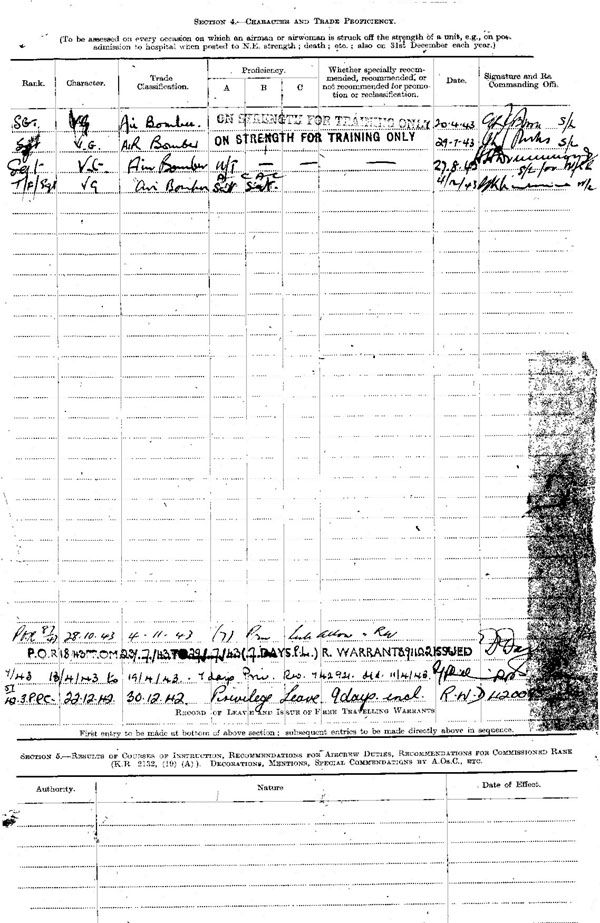 SECTION 4.—CHARACTER AND TRADE PROFICIENCY.
(To be assessed on every occasion on which an airman or airwoman is struck off the strength of a unit, e.g., on pos
admission to hospital when posted to N.E. strength; death; etc.; also on 31st December each year.)
Rank. Character. Trade Classification. Proficiency. A B C Whether specially recommended, recommended, or not recommended for promotion or reclassification. Date. Signature and Ra Commanding Offi.
SGT. VG Air Bomber. ON STRENGTH FOR TRAINING ONLY 20-4-43 S/L
Sgt V.G. AIR Bomber ON STRENGTH FOR TRAINING ONLY 29-7-43 S/L
Sgt V.G. Air Bomber U/T — — — 27.8.43
T/F/Sgt VG Air Bomber A Sat CAC Sat 4/12/43
28.10.43 4-11-43 (7)
P.O.R. FROM 23/7/43 TO 29/7/43 (7 DAYS P.L.) R. WARRANT ISSUED
4/43 13/4/43 to 19/4/43. 7 days Priv. 742921. dtd. 11/4/43.
22.12.42 30.12.42 Privilege Leave. 9 days incl. R.W.
RECORD OF LEAVE AND ISSUE OF FREE TRAVELLING WARRANTS
First entry to be made at bottom of above section; subsequent entries to be made directly above in sequence.
SECTION 5.—RESULTS OF COURSES OF INSTRUCTION, RECOMMENDATIONS FOR AIRCREW DUTIES, RECOMMENDATIONS FOR COMMISSIONED RANK
(K.R. 2152, (19) (A)). DECORATIONS, MENTIONS, SPECIAL COMMENDATIONS BY A.Os.C., ETC.
Authority. Nature Date of Effect.